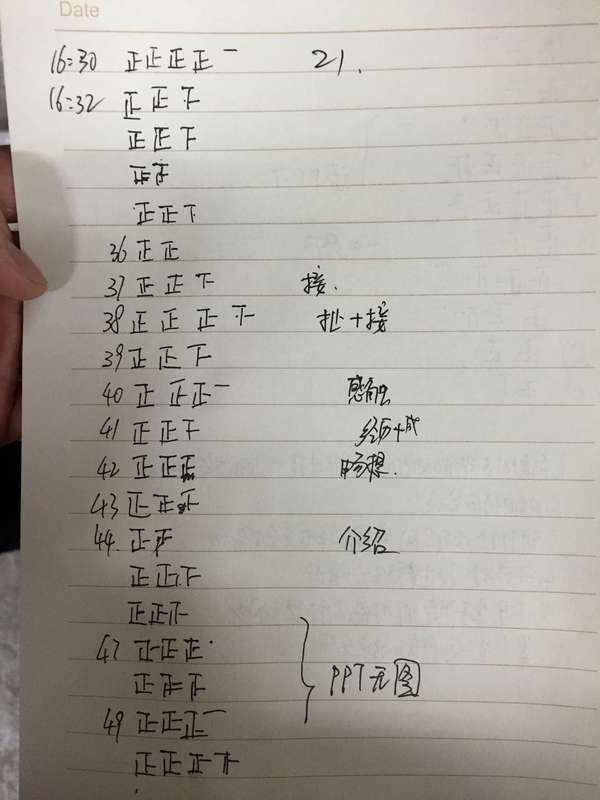 Date
16:30 正正正正一 21.
16:32 正正下
正正下
正正
正正下
36 正正
37 正正下 接.
38 正正正下 扯+接
39 正正下
40 正正正一 感触
41 正正下 经历+感
42 正正正 畅想.
43 正正正
44. 正正 介绍
正正下
正正下
47 正正正
正正正
49 正正正一
正正正下
PPT无图